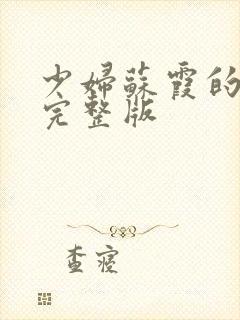 少婦蘇霞的
完整版
查寢